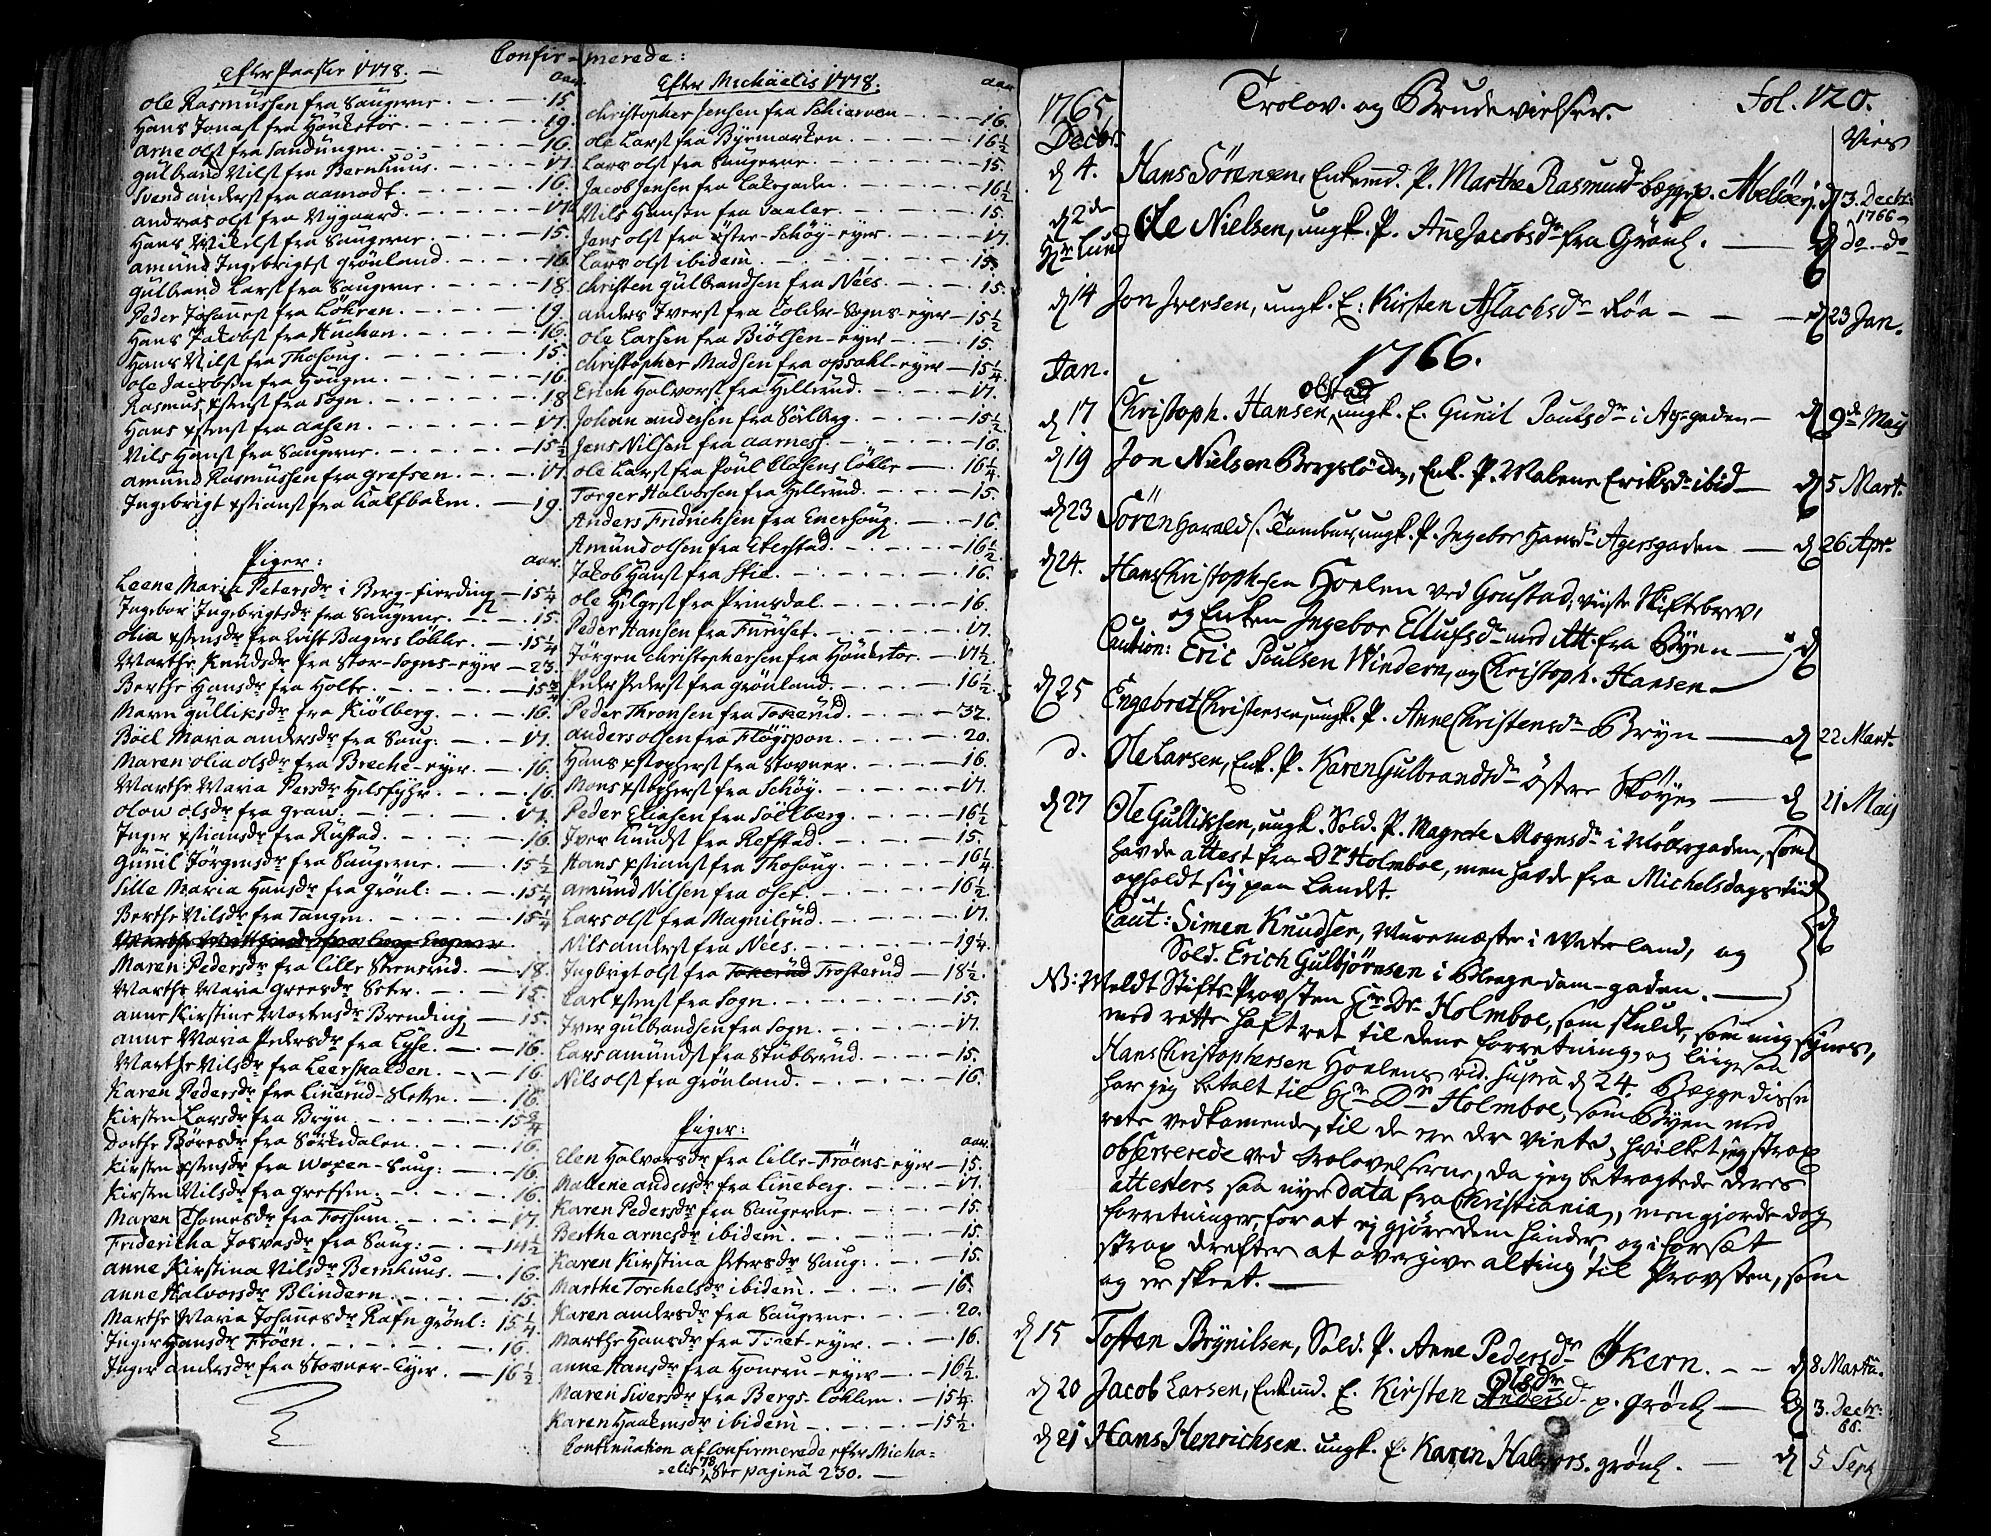 Confir-merede:
Efter Paaske 1778. — aar
Ole Rasmussen fra Saugerne. — 15.
Hans Jonasß fra Hönketör. — 19.
Arne Olsß fra Sandungen. — 16.
Gulbrand Nilsß fra Bernhuus. — 17.
Svend Andersß fra Aamodt. — 16.
Andreas Olsß fra Nygaard. — 17.
Hans Mikelsß fra Saugerne. — 15.
Amund Ingebrigtsß Grönland. — 16.
Gulbrand Larsß fra Saugerne — 18.
Peder Johannesß fra Lökren. — 19.
Hans Jakobsß fra Hucken. — 16.
Hans Nilsß fra Thosoug. — 15.
Ole Jacobsen fra Hougen. — 16.
Rasmus Xstensß fra Sogn. — 18
Hans Xstensß fra Aasen. — 17.
Nils Hansß fra Saugerne. — 15½
Amund Rasmussen fra Grefsen. — 17.
Ingebrigt Xstiansß fra Kalfbaken. — 19.
Piger: aar.
Leene Maria Petersdr i Berg-fierding — 15¼
Ingebor Ingebrigtsdr fra Saugerne. — 15.
Olia Xstensdr fra Erist Bagers Lökke. — 15¼
Marthe Knudsdr fra Stor-Sogns-eyer — 23.
Berthe Hansdr fra Holte. — 15¾
Maren Gulliksdr fra Kiölberg. — 16.
Boel Maria Andersdr fra Saug: — 17.
Maren Olia Olsdr fra Breche-eyer. — 16.
Marthe Maria Persdr Hilsfyhr. — 16.
Olow Olsdr fra Graw. — 17.
Inger Xstiansdr fra Rustad. — 16.
Gunil Jörgensdr fra Saugerne. — 15½
Sille Maria Hansdr fra Grönl: — 15¼
Berthe Nilsdr fra Tangen. — 15¼
Maren Pedersdr fra Lille Stenerud. — 18.
Marthe Maria Greesdr Seter. — 15.
Anne Kirstine Mortensdr Brending — 15.
Anne Maria Pedersdr fra Lyse. — 16.
Marthe Nilsdr fra Leerskalden. — 16.
Karen Pedersdr fra Linerud-Sletten. — 16.
Kirsten Larsdr fra Bryn. — 15¾
Dorthe Böresdr fra Sörkedalen. — 16.
Kirsten Xstensdr fra Woxen-Saug: — 16.
Kirsten Nilsdr fra Grefsen. — 16.
Maren Thomesdr fra Fossum. — 17.
Fridericha Josvasdr fra Saug: — 14½
Anne Kirstina Nilsdr Bernhuus. — 16.
Anne Halvorsdr Blindern. — 15.
Marthe Maria Johannesdr Rafn Grönl: 15¼
Inger Hansdr Fröen. — 16.
Inger Andersdr fra Stovner-Eyer. — 16½
Efter Michäelis 1778. aar
Christopher Jensen fra Skierven — 16.
Ole Larsß fra Byemarken — 16½
Lars Olsß fra Saugerne. — 15.
Jacob Jensen fra Lakegaden. — 16½
Nils Hansen fra Saaler. — 15.
Jens Olsß fra Öster-Schöy-eyer. — 17.
Lars Olsß ibidem. — 15.
Christen Gulbrandsen fra Nees. — 15.
Anders Iversß fra Lolder-Sogns-eyer — 15½
Ole Larsen fra Biölsen-eyer — 15.
Christopher Madsen fra Opsahl-eyer — 15¼
Erich Halvorsß fra Hellerud. — 17.
Johan Andersen fra Solberg. — 15½
Jens Nilsen fra Aarnes. — 16.
Ole Larsß fra Poul Clasens Lökke — 16¼
Torger Halvorsen fra Hellerud. — 15.
Anders Fridrichsen fra Enerhoug. — 16.
Amund Olsen fra Ekerstad. — 16½
Jakob Hansß fra Stie. — 16.
Ole Helgesß fra Prinsdal. — 16.
Peder Hansen fra Furuset. — 17.
Jörgen Christophersen fra Hönketor. — 17½
Peder Pedersß fra Grönland. — 16½
Peder Thronsen fra Tokerud. — 32.
Anders Olsen fra Flögspon. — 20.
Hans Xstophersß fra Stovner. — 16.
Mons Xstophersß fra Schöy. — 17.
Peder Eliasen fra Söllberg. — 16½
Iver Knudsß fra Refstad. — 15.
Hans Xstiansß fra Thosoug. — 16¼
Amund Nilsen fra Olset. — 16½
Lars Olsß fra Magnilrud. — 17.
Nils Andersß fra Nees. — 19¼.
Ingbrigt Olsß fra Tokerud Trosterud — 18½.
Carl Xstensß fra Sogn. — 15.
Iver Gulbrandsen fra Sogn. — 17.
Lars Amundsß fra Stubberud. — 15.
Nils Olsß fra Grönland. — 16.
Piger: aar.
Elen Halvorsdr fra Lille-Fröens-eyer — 15.
Mallene Andersdr fra Lineberg. — 17.
Karen Pedersdr fra Saugerne — 15.
Berthe Arnesdr ibidem. — 15.
Karen Kirstina Petersdr Saug: — 15.
Marthe Torchelsdr ibidem. — 16.
Karen Andersdr fra Saugerne — 20.
Marthe Hansdr fra Tveet-eyer — 16.
Anne Hansdr fra Honeru-eyer — 16½.
Maren Siversdr fra Bergs-Lökken — 15¼.
Karen Haakensdr ibidem — 15½.
Continuation af Confirmerede efter Micha=
=elis 78 See pagina 230. —
1765 Trolov- og Brudevielser. Fol. 120.
Decbr. Vies
d 4. Hans Sörensen, Enkemd. P. Marthe Rasmusd- begge p. Abelöen. d 3. Decbr: 1766
d 2de Hr Lund Ole Nielsen, ungk. P. Anne Jacobsdr fra Grönl. — d do do
d 14 Jon Iversen, ungk. E: Kirsten Aslachsdr Röa — d 23 Jan.
1766.
Jan.
d 17 Christoph. Hansen, Olstad ungk. E. Gunil Poulsdr i Agergaden — d 9de Maij
d 19 Jon Nielsen Bergslöcken, Enk. P. Malene Eriksdr ibid — d 5 Mart.
d 23 Sören Haralds. Tambur, ungk. P. Ingebor Hansdr Agersgaden — d 26 Apr.
d 24. Hans Christophsen Hoelen ved Goustad, viiste Skiftebrev,
og Enken Ingebor Ellufsdr med Att. fra Byen — d
Caution: Eric Poulsen Windern, og Christoph. Hansen —
d 25 Engebret Christensen, ungk. P. Anne Christensdr Bryn — d 22 Mart.
d. Ole Larsen, Enk. P. Karen Gulbrandsdr Östre Sköyen — d 21 Maij
d 27 Ole Gulliksen, ungk. Sold. P. Magrete Mognsdr i Möörgaden, som
havde attest fra Dr Holmboe, men havde fra Michelsdags tiid
opholdt sig paa Landet.
Caut: Simen Knudsen, Muremester i Waterland, og d
Sold. Erich Gulbjörnsen i Blegedam-gaden. —
NB: Meldt Stifts-Provsten Hr Dr Holmboe, som skulde, som mig synes,
med rette haft ret til dene forretning, og liigesaa
Hans Christophersen Hoelens vid. supra d 24. Begge disse
har jeg betalt til Hr Dr Holmboe, som Byen med
rette vedkommende, til de ere der viete, hvilket jeg strax
observerede ved trolovelserne, da jeg betragtede deres
attester saa nye data fra Christiania, men gjorde dog
forretninger, for at ej gjöre dem hinder, og i forsæt
strax derefter at overgive alting til Provsten, som
og er skeet. —
d 15 Tosten Brynilsen, Sold. P. Anne Pedersdr Ökern. — d 8 Martii.
d 20 Jacob Larsen, Enkmd. E. Kirsten Andersd Olsdr p. Grönl — d 3. Decbr: 66.
d 21 Hans Henrichsen. ungk. E. Karen Halvors. Grönl. — d 5 Sept